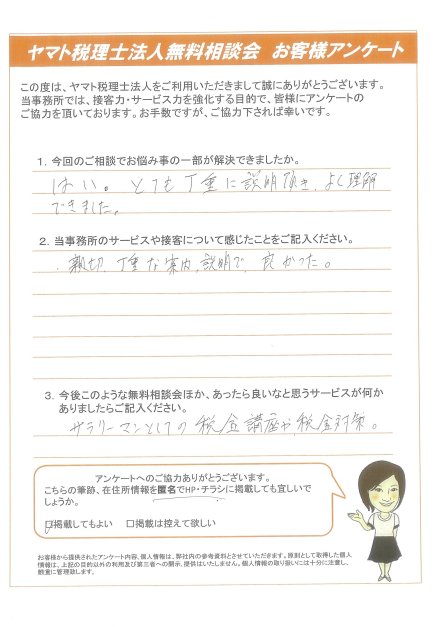 ヤマト税理士法人無料相談会 お客様アンケート
この度は、ヤマト税理士法人をご利用いただきまして誠にありがとうございます。
当事務所では、接客力・サービス力を強化する目的で、皆様にアンケートの
ご協力を頂いております。お手数ですが、ご協力下されば幸いです。
1. 今回のご相談でお悩み事の一部が解決できましたか。
はい。とても丁重に説明頂き、よく理解
できました。
2. 当事務所のサービスや接客について感じたことをご記入ください。
親切、丁重な案内、説明で、良かった。
3. 今後このような無料相談会ほか、あったら良いなと思うサービスが何か
ありましたらご記入ください。
サラリーマンとしての税金講座や税金対策。
アンケートへのご協力ありがとうございます。
こちらの筆跡、在住所情報を匿名でHP・チラシに掲載しても宜しいで
しょうか。
☑掲載してもよい □掲載は控えて欲しい
お客様から提供されたアンケート内容、個人情報は、弊社内の参考資料とさせていただきます。原則として取得した個人
情報は、上記の目的以外の利用及び第三者への開示、提供はいたしません。個人情報の取り扱いには十分に注意し、
厳重に管理致します。